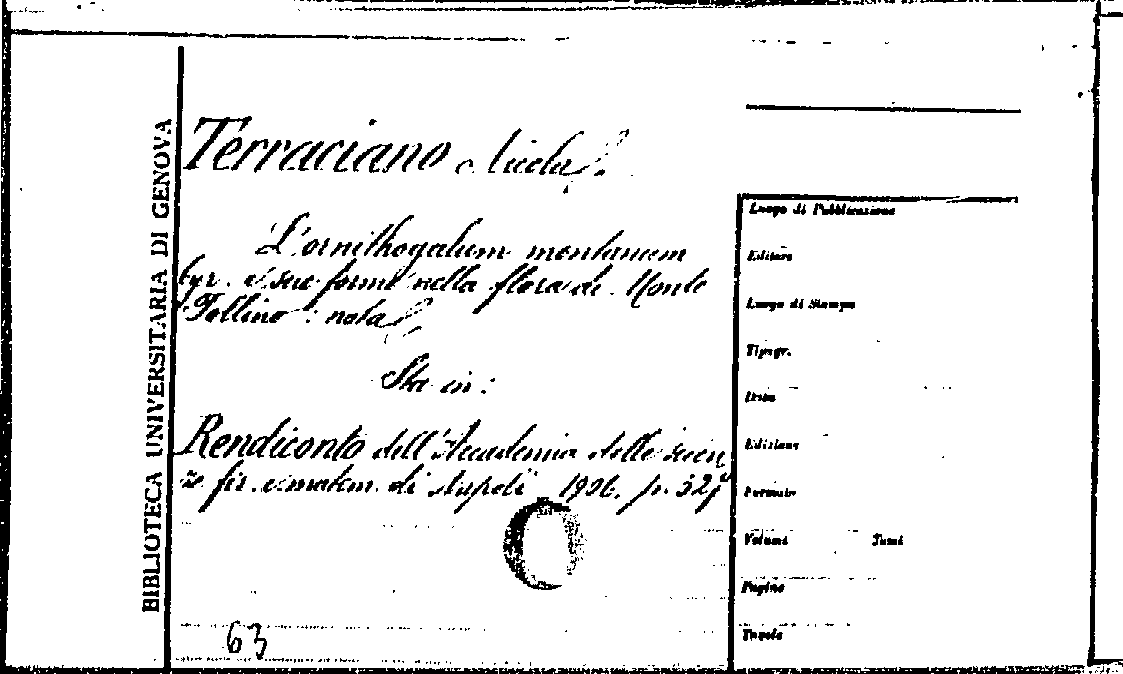 BIBLIOTECA UNIVERSITARIA DI GENOVA
Terraciano Nicola
L'ornithogalum montanum
Cyr. e sue forme nella flora di Monte
Pollino: nota
Sta in:
Rendiconto dell'Accademia delle scien
ze fis. e matem. di Napoli 1906. p.
63
Luogo di Pubblicazione
Editore
Luogo di Stampa
Tipogr.
Data
Edizione
Formato
Volumi Tomi
Pagine
Tavole